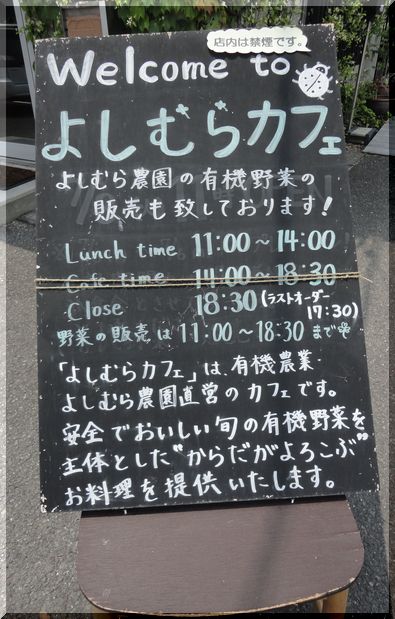 店内は禁煙です。
Welcome to
よしむらカフェ
よしむら農園の有機野菜の
販売も致しております!
Lunch time 11:00～14:00
Cafe time 14:00～18:30
Close 18:30(ラストオーダー
17:30)
野菜の販売は11:00～18:30まで
「よしむらカフェ」は、有機農業・
よしむら農園直営のカフェです。
安全でおいしい旬の有機野菜を
主体とした"からだがよろこぶ"
お料理を提供いたします。